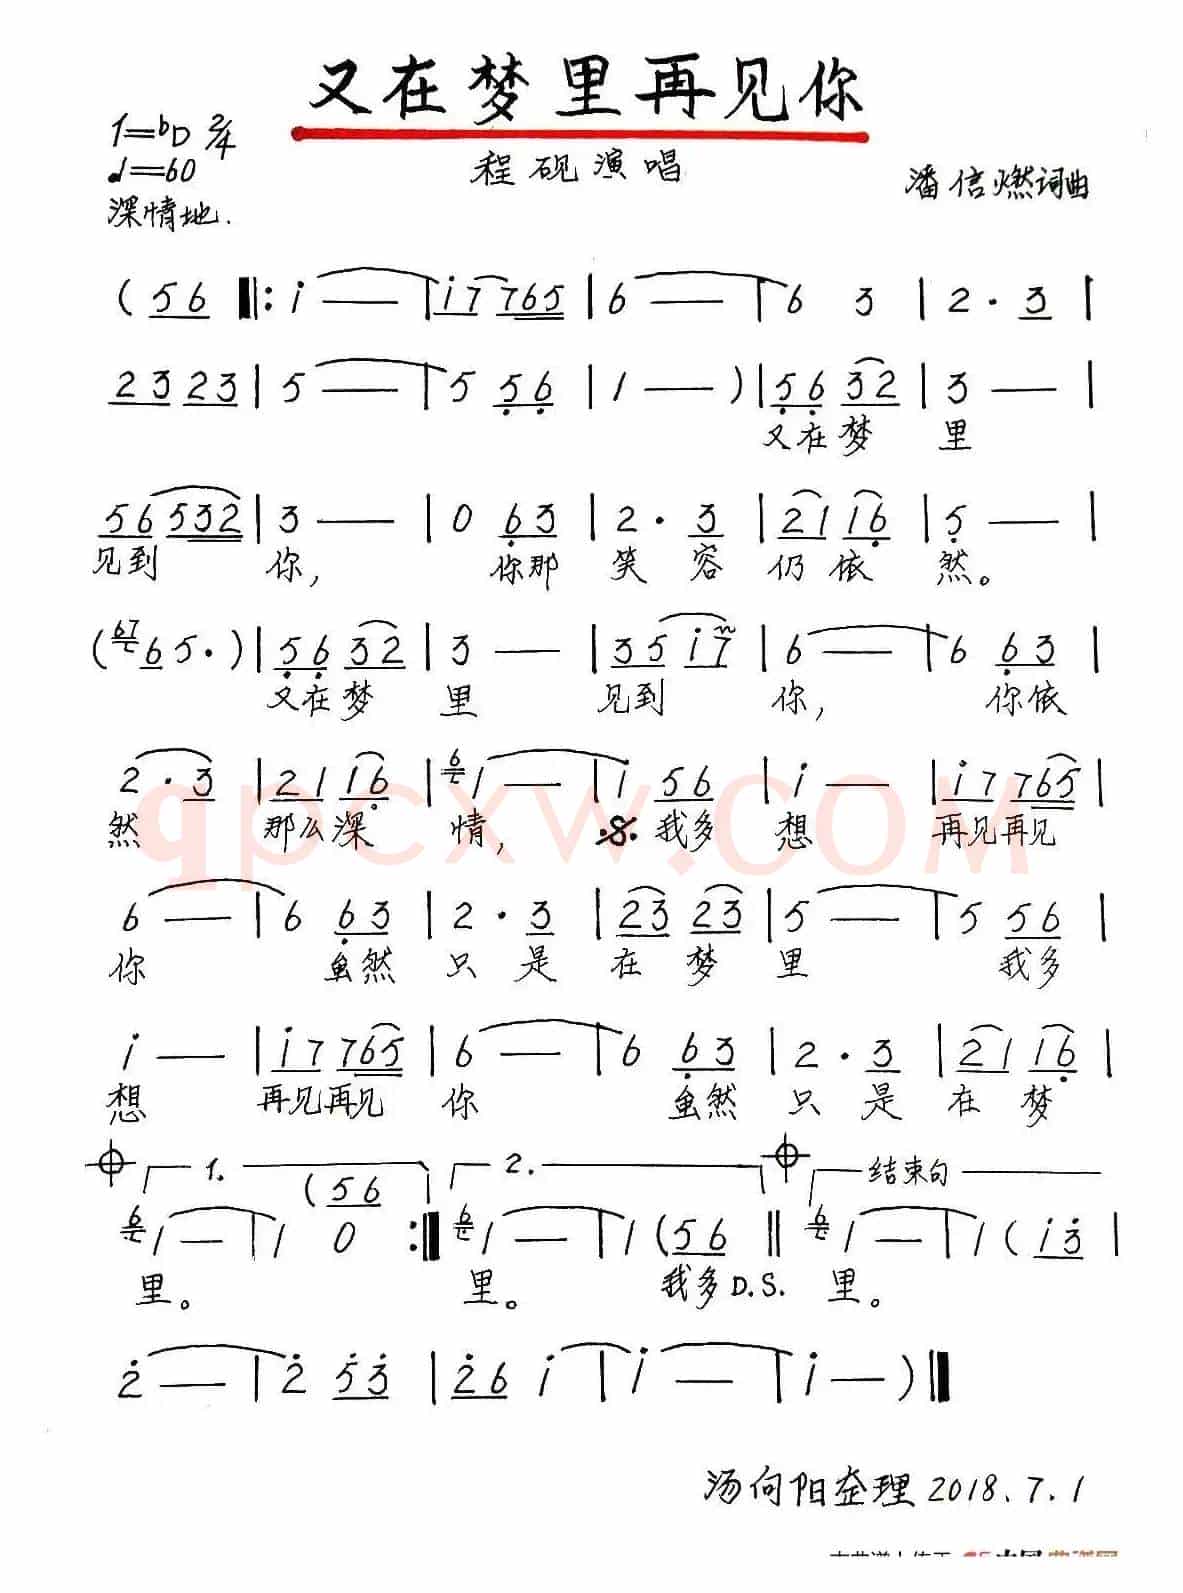 又在梦里再见你
1=bD 2/4
♩=60
程砚演唱
潘信燃词曲
深情地.
( 5 6 ‖: i — | i 7 7 6 5 | 6 — | 6 3 | 2 · 3 |
2 3 2 3 | 5 — | 5 5 6 | 1 — ) | 5 6 3 2 | 3 — |
又在梦 里
5 6 5 3 2 | 3 — | 0 6 3 | 2 · 3 | 2 1 1 6 | 5 — |
见到 你, 你那 笑 容 仍 依 然。
( 67 6 5 · ) | 5 6 3 2 | 3 — | 3 5 i 7 | 6 — | 6 6 3 |
又在梦 里 见到 你, 你依
2 · 3 | 2 1 1 6 | 6 1 — | 1 5 6 | i — | i 7 7 6 5 |
然 那么深 情, 我多 想 再见再见
6 — | 6 6 3 | 2 · 3 | 2 3 2 3 | 5 — | 5 5 6 |
你 虽然 只 是 在 梦 里 我多
i — | i 7 7 6 5 | 6 — | 6 6 3 | 2 · 3 | 2 1 1 6 |
想 再见再见 你 虽然 只 是 在 梦
1. ( 5 6 2. 结束句
6 1 — | 1 0 :‖ 6 1 — | 1 ( 5 6 ‖ 6 1 — | 1 ( i 3 |
里。 里。 我多 D.S. 里。
2 — | 2 5 3 | 2 6 i | i — | i — ) ‖
汤向阳整理 2018.7.1
qpcxw.com